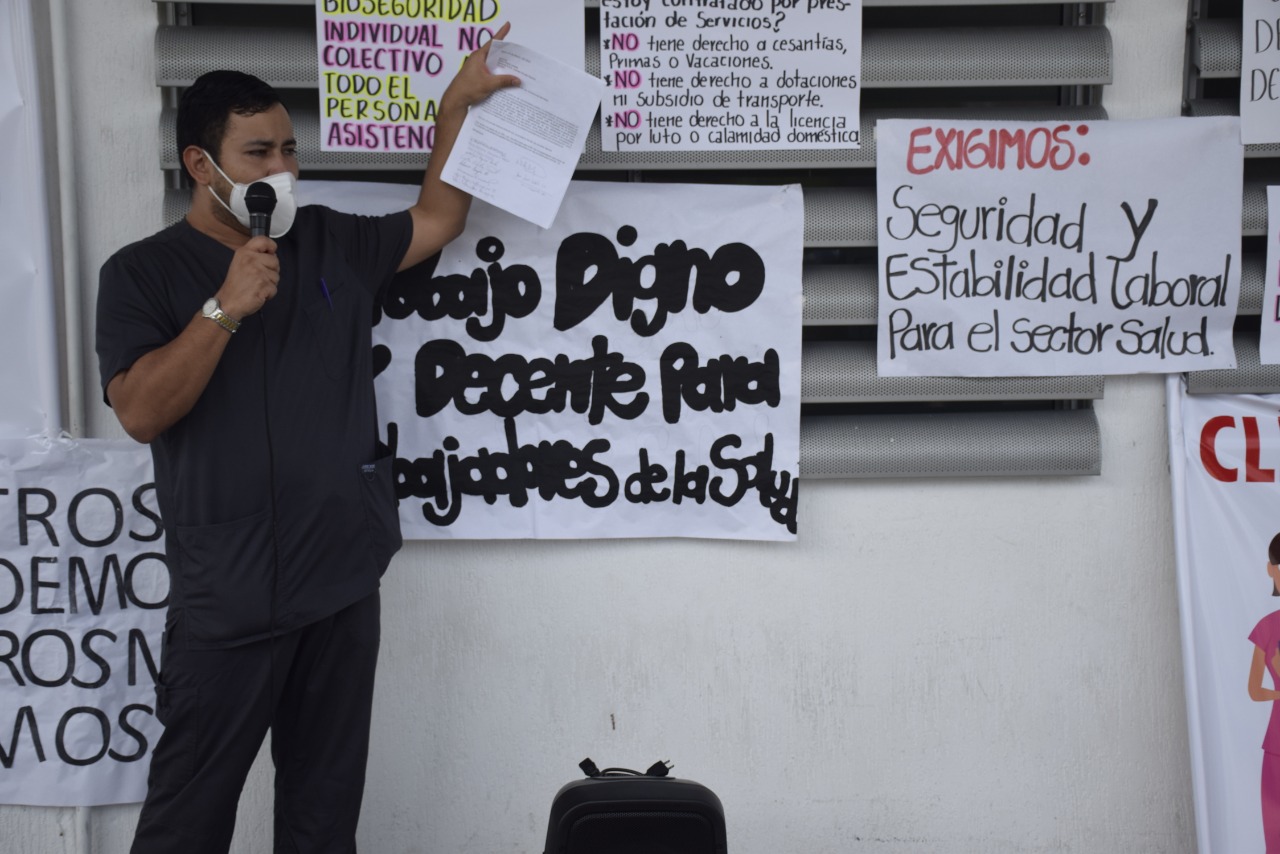 BIOSEGURIDAD
INDIVIDUAL NO
COLECTIVO
TODO EL
PERSONA
ASISTENC
estoy contratado por pres-
tación de Servicios?
*NO tiene derecho a cesantías,
Primas o Vacaciones.
*NO tiene derecho a dotaciones
ni subsidio de transporte.
*NO tiene derecho a la licencia
por luto o calamidad doméstica
EXIGIMOS:
Seguridad y
Estabilidad Laboral
Para el sector salud.
abajo Digno
y Decente Para
bajadores de la Salud
TROS
DEMO
ROS N
MOS
D
DE
CL